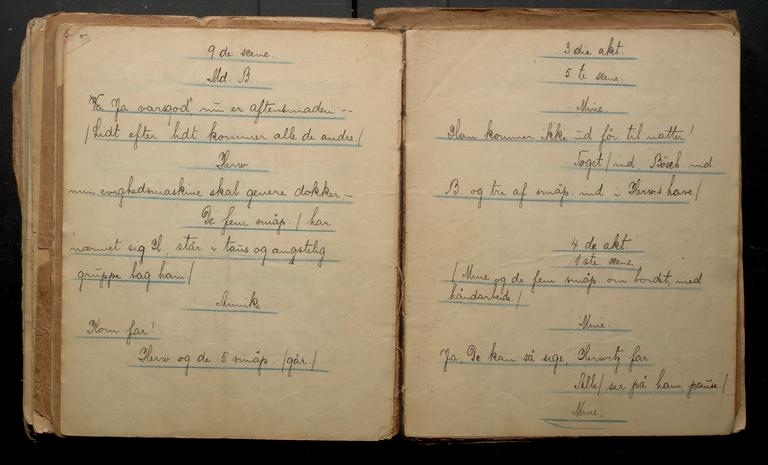 9 de scene.
Md. B
Ja varsgod', nu er aftensmaden --
/ Lidt efter lidt kommer alle de andre /
Herw
min evighedsmaskine skal genere dokker. -
De fem småp. / har
nærmet sig H, står i taus og ængstelig
gruppe bag ham /
Annik.
Kom far!
Herw og de 5 småp. / går. /
3 die akt.
5 te scene.
Mine.
Han kommer ikke ud før til natten!
Toget / ind Bösch ind.
B. og tre af småp. ind i Herw's have. /
4 de akt.
1 ste scene.
/ Mine og de fem småp. om bordet, med
håndarbeide. /
Mine.
Ja, De kan så sige, Herwitz far
Alle / ser på ham, pause /
Mine.